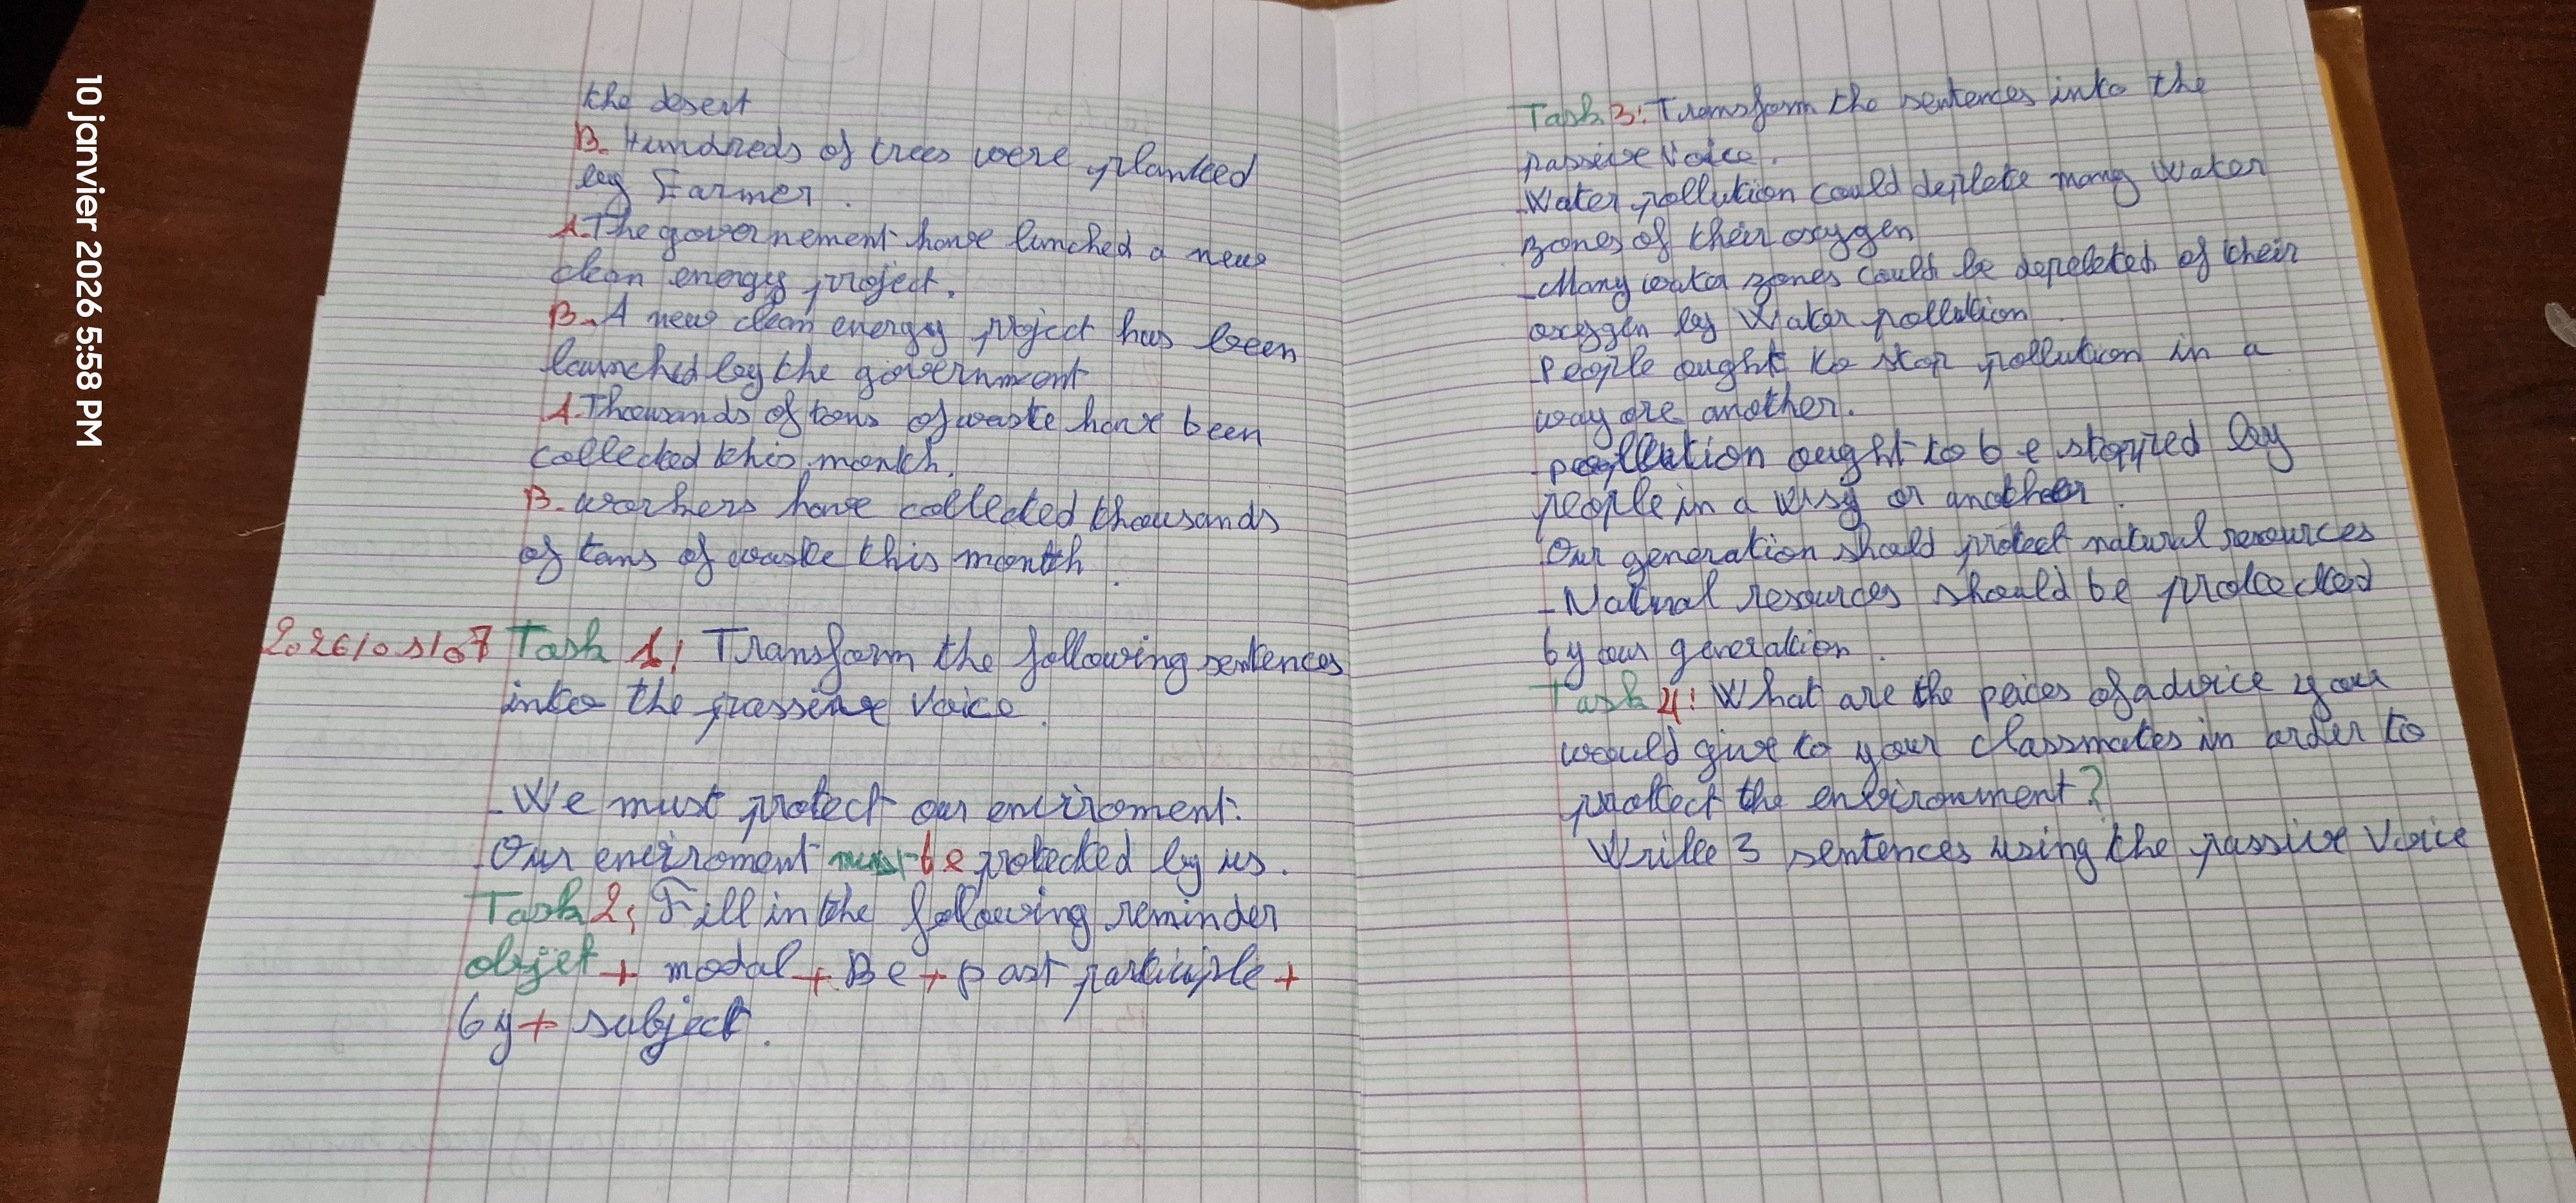 10 janvier 2026 5:58 PM
the desert
B. Hundreds of trees were planted
by Farmer.
A. The governement have lunched a new
clean energy project.
B. A new clean energy project has been
launched by the government
A. Thousands of tons of waste have been
collected this month.
B. workers have collected thousands
of tans of waste this month.
2026/01/07 Task 1: Transform the following sentences
into the passive voice.
- We must protect our enviroment.
- Our enviroment must be protected by us.
Task 2: Fill in the following reminder
objet + modal + Be + past participle +
by + subject.
Task 3: Transform the sentences into the
passive Voice.
- Water pollution could deplete many water
zones of their oxygen
- Many water zones could be depeleted of their
oxygen by Water pollution.
- People ought to stop pollution in a
way ore another.
- pollution ought to be stopped by
people in a way or another.
Our generation should protect natural resources
- Natural resources should be protected
by our generation.
Task 4: What are the peices of advice you
would give to your classmates in order to
protect the environment?
Write 3 sentences using the passive Voice